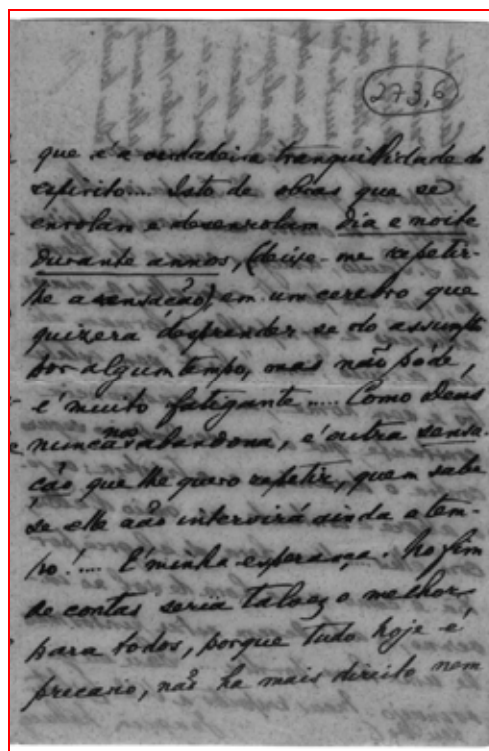 273,6
que é a verdadeira tranquillidade do
espirito.... Isto de obras que se
enrolam e desenrolam dia e noite
durante annos, (deixe-me repetir-
lhe a sensação) em um cerebro que
quizera desprender-se do assumpto
por algum tempo, mas não póde,
é muito fatigante..... Como Deus
nunca nos abandona, é outra sensa-
ção que lhe quero repetir, quem sabe
se elle não intervirá ainda a tem-
po!.... É minha esperança. No fim
de contas seria talvez o melhor
para todos, porque tudo hoje é
precario, não ha mais direito nem